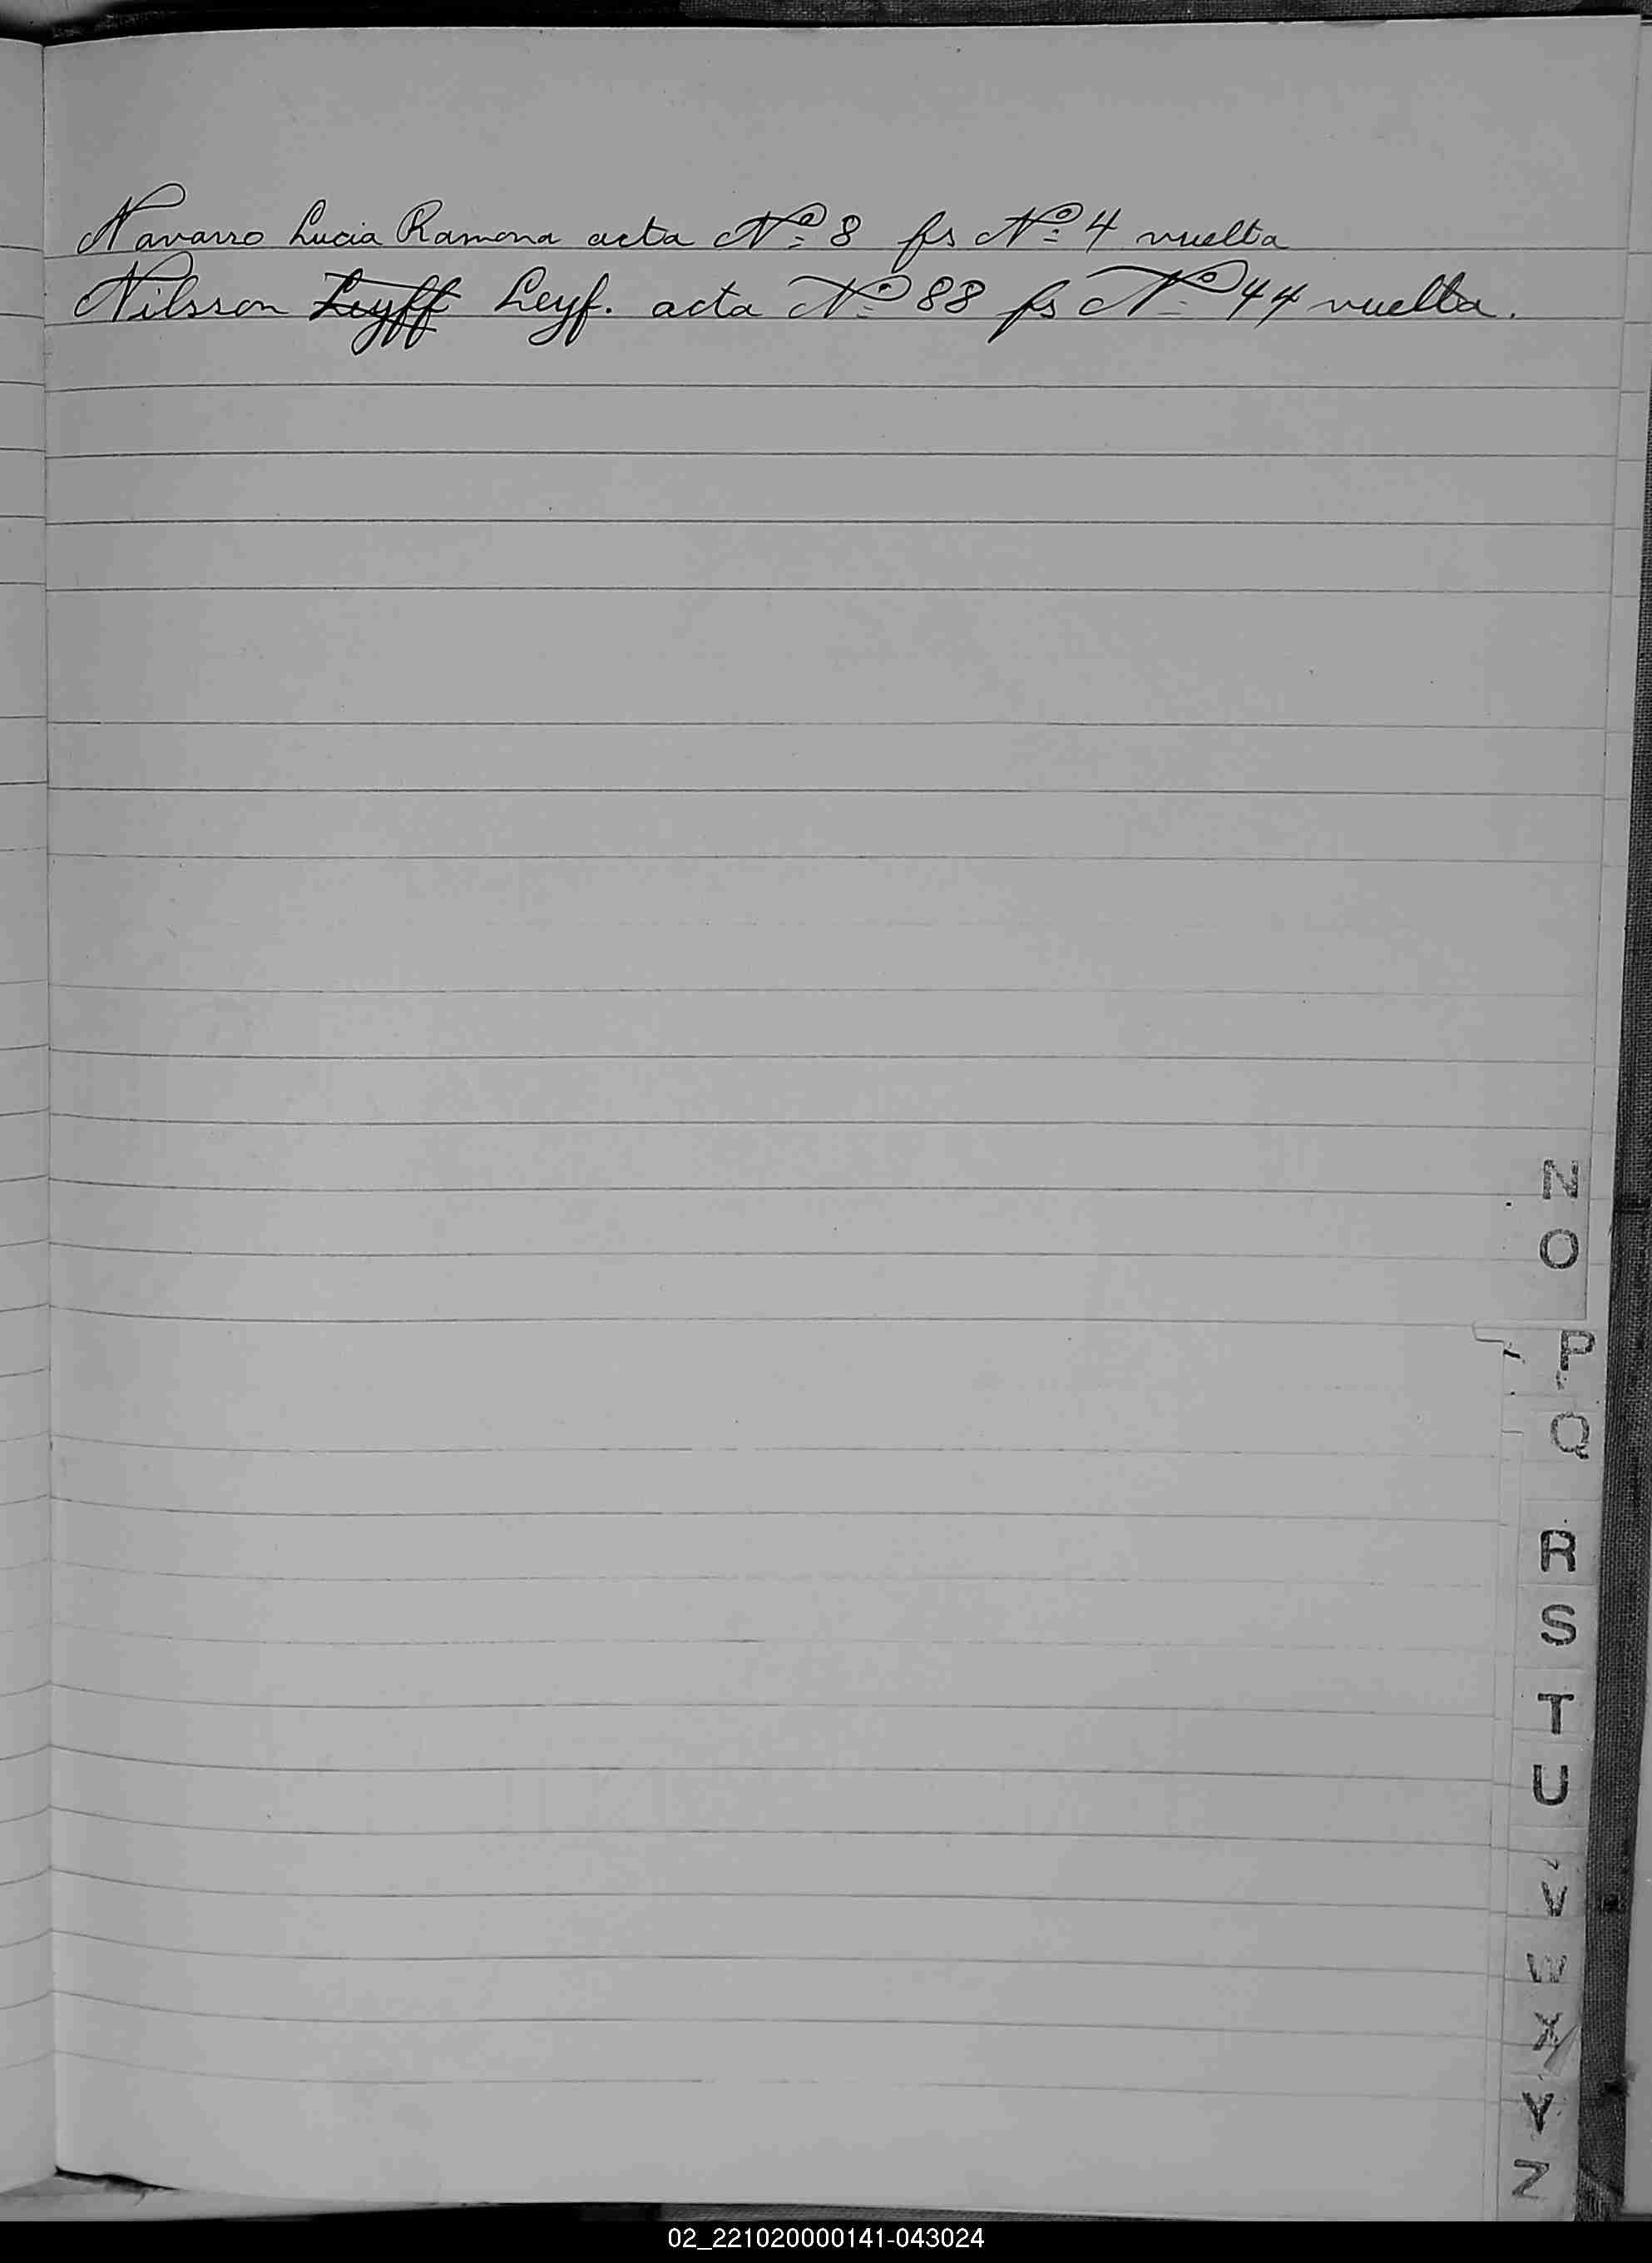 Navarro Lucia Ramona acta Nº 8 fs Nº 4 vuelta
Nilsson Leyff Leyf. acta Nº 88 fs Nº 44 vuelta.
N
O
P
Q
R
S
T
U
V
W
X
Y
Z
02_221020000141-043024